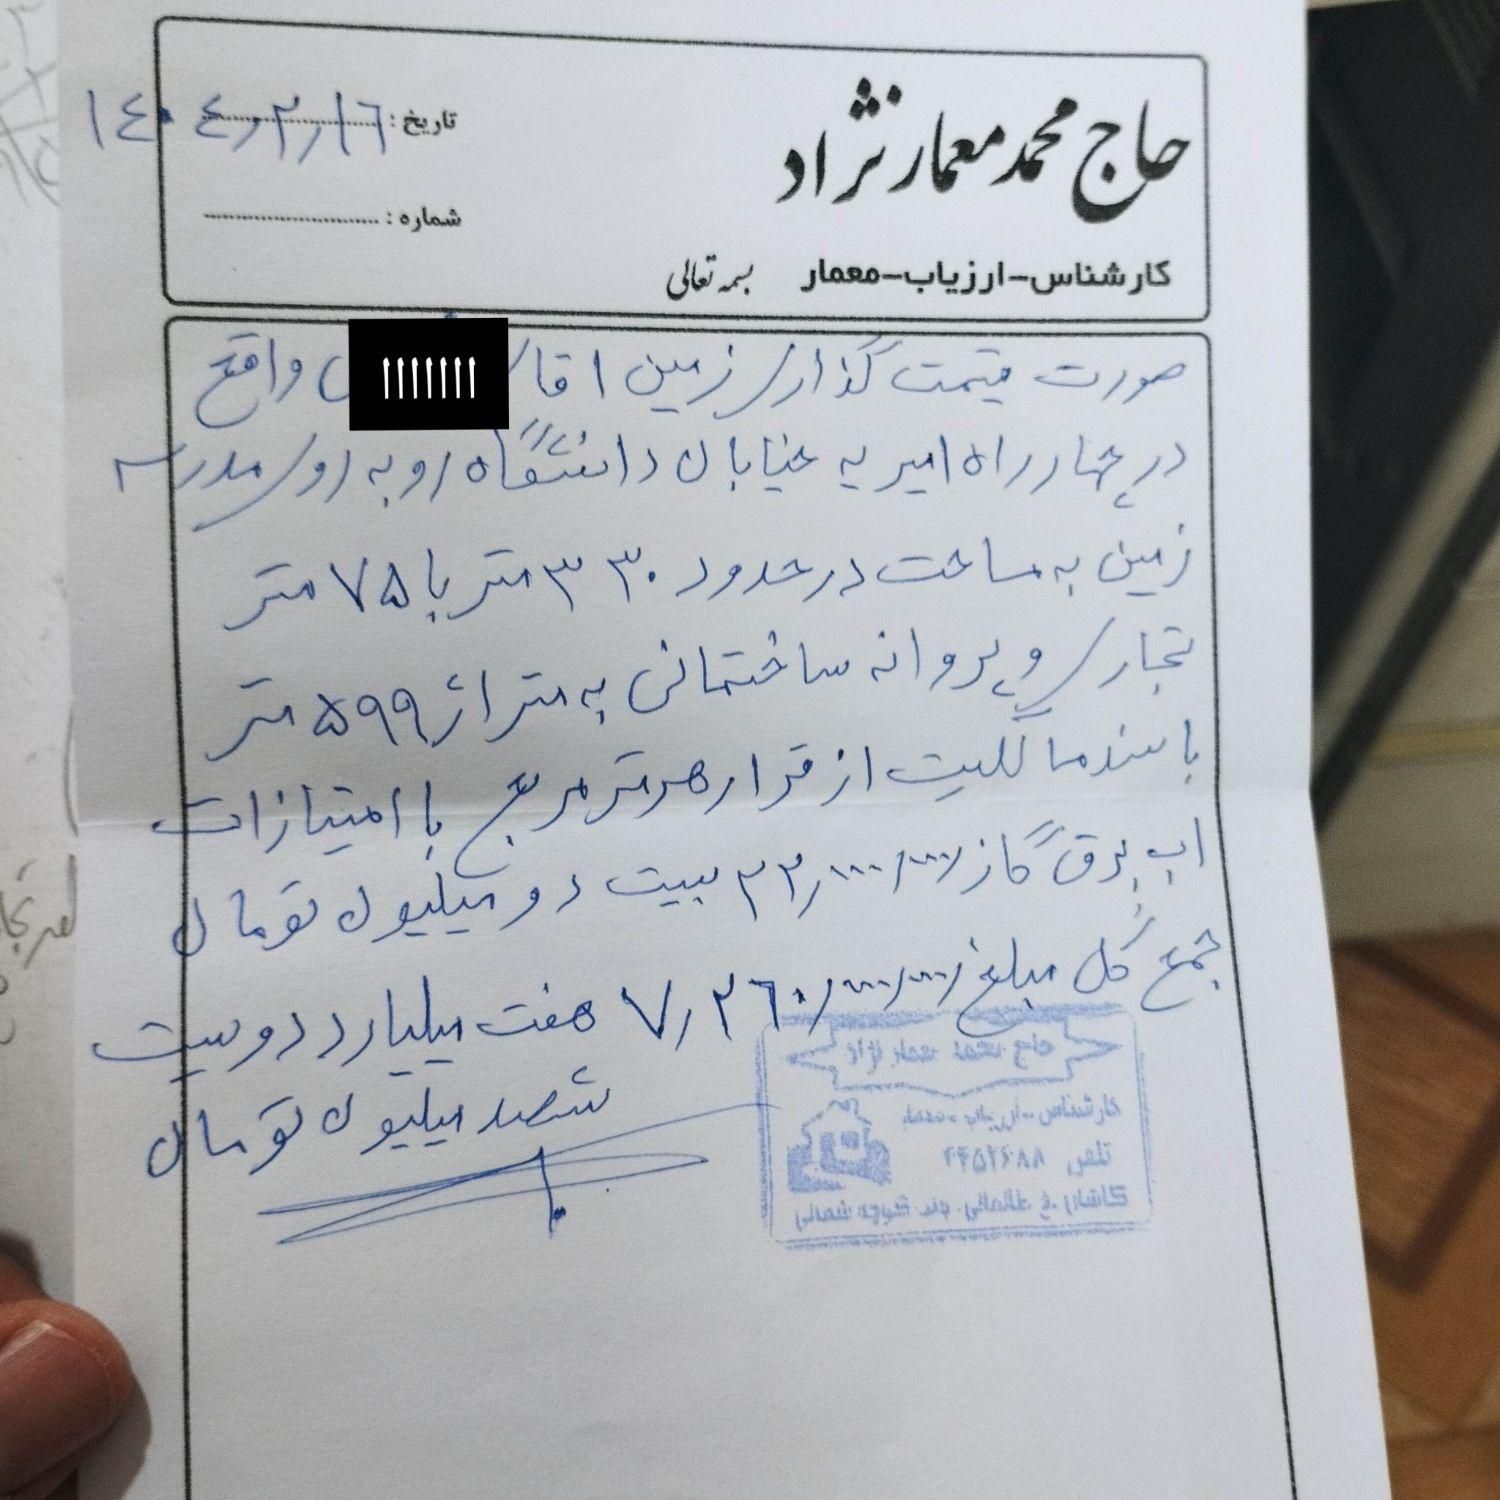 حاج محمد معمار نژاد
تاریخ : ۱۴۰۴٫۲٫۱۶
شماره :
کارشناس-ارزیاب-معمار
بسمه تعالی
صورت قیمت گذاری زمین اقای واقع
در چهار راه امیریه خیابان دانشگاه روبه روی مدرسه
زمین به مساحت در حدود ۳۳۰ متر با ۷۵ متر
تجاری و پروانه ساختمانی به متراژ ۵۹۹ متر
با سند مالکیت از قرار هر متر مربع با امتیازات
اب برق گاز ۲۲٫۰۰۰٫۰۰۰ بیست دو میلیون تومان
جمع کل مبلغ ۷٫۲۶۰٫۰۰۰٫۰۰۰ هفت میلیارد دوسیت
شصد میلیون تومان
حاج محمد معمار نژاد
کارشناس-ارزیاب-معمار
تلفن
کاشان